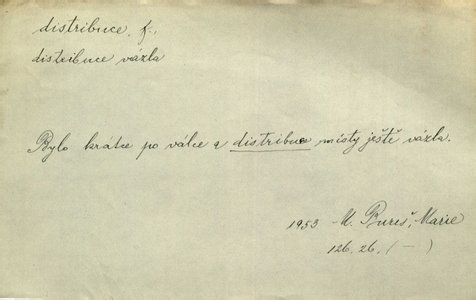 distribuce, f.,
distribuce vázla
Bylo krátce po válce a distribuce místy ještě vázla.
1953 M. Bureš, Marie
126.26. (—)